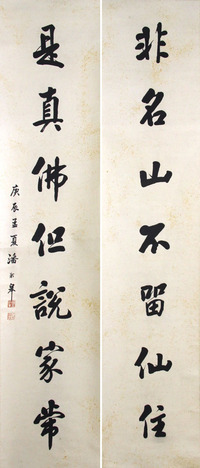 非名山不留仙住
是真佛但說家常
庚辰孟夏潘齡皋